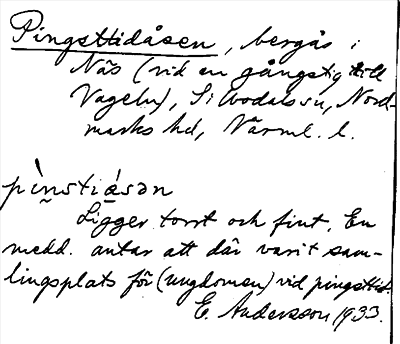 Pingsttidåsen, bergås i
Näs (vid en gångstig till
Vageln), Silbodals sn, Nord-
marks hd, Värml. l.
pìnstiásən
Ligger torrt och fint. En
medd. antar att där varit sam-
lingsplats för (ungdomen) vid pingsttid.
E. Andersson 1933.